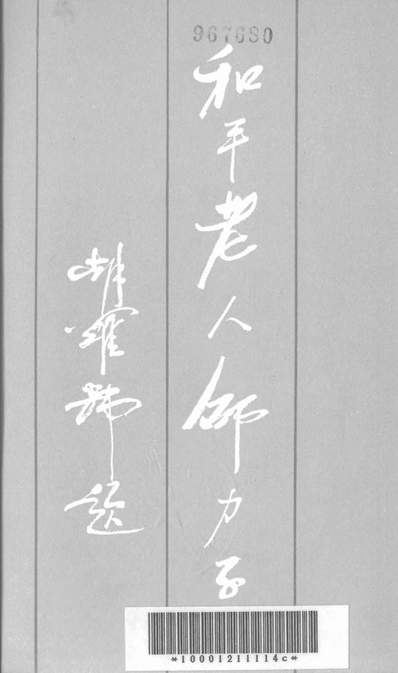 967680
和平老人邵力子
胡耀邦题
*10001211114c*